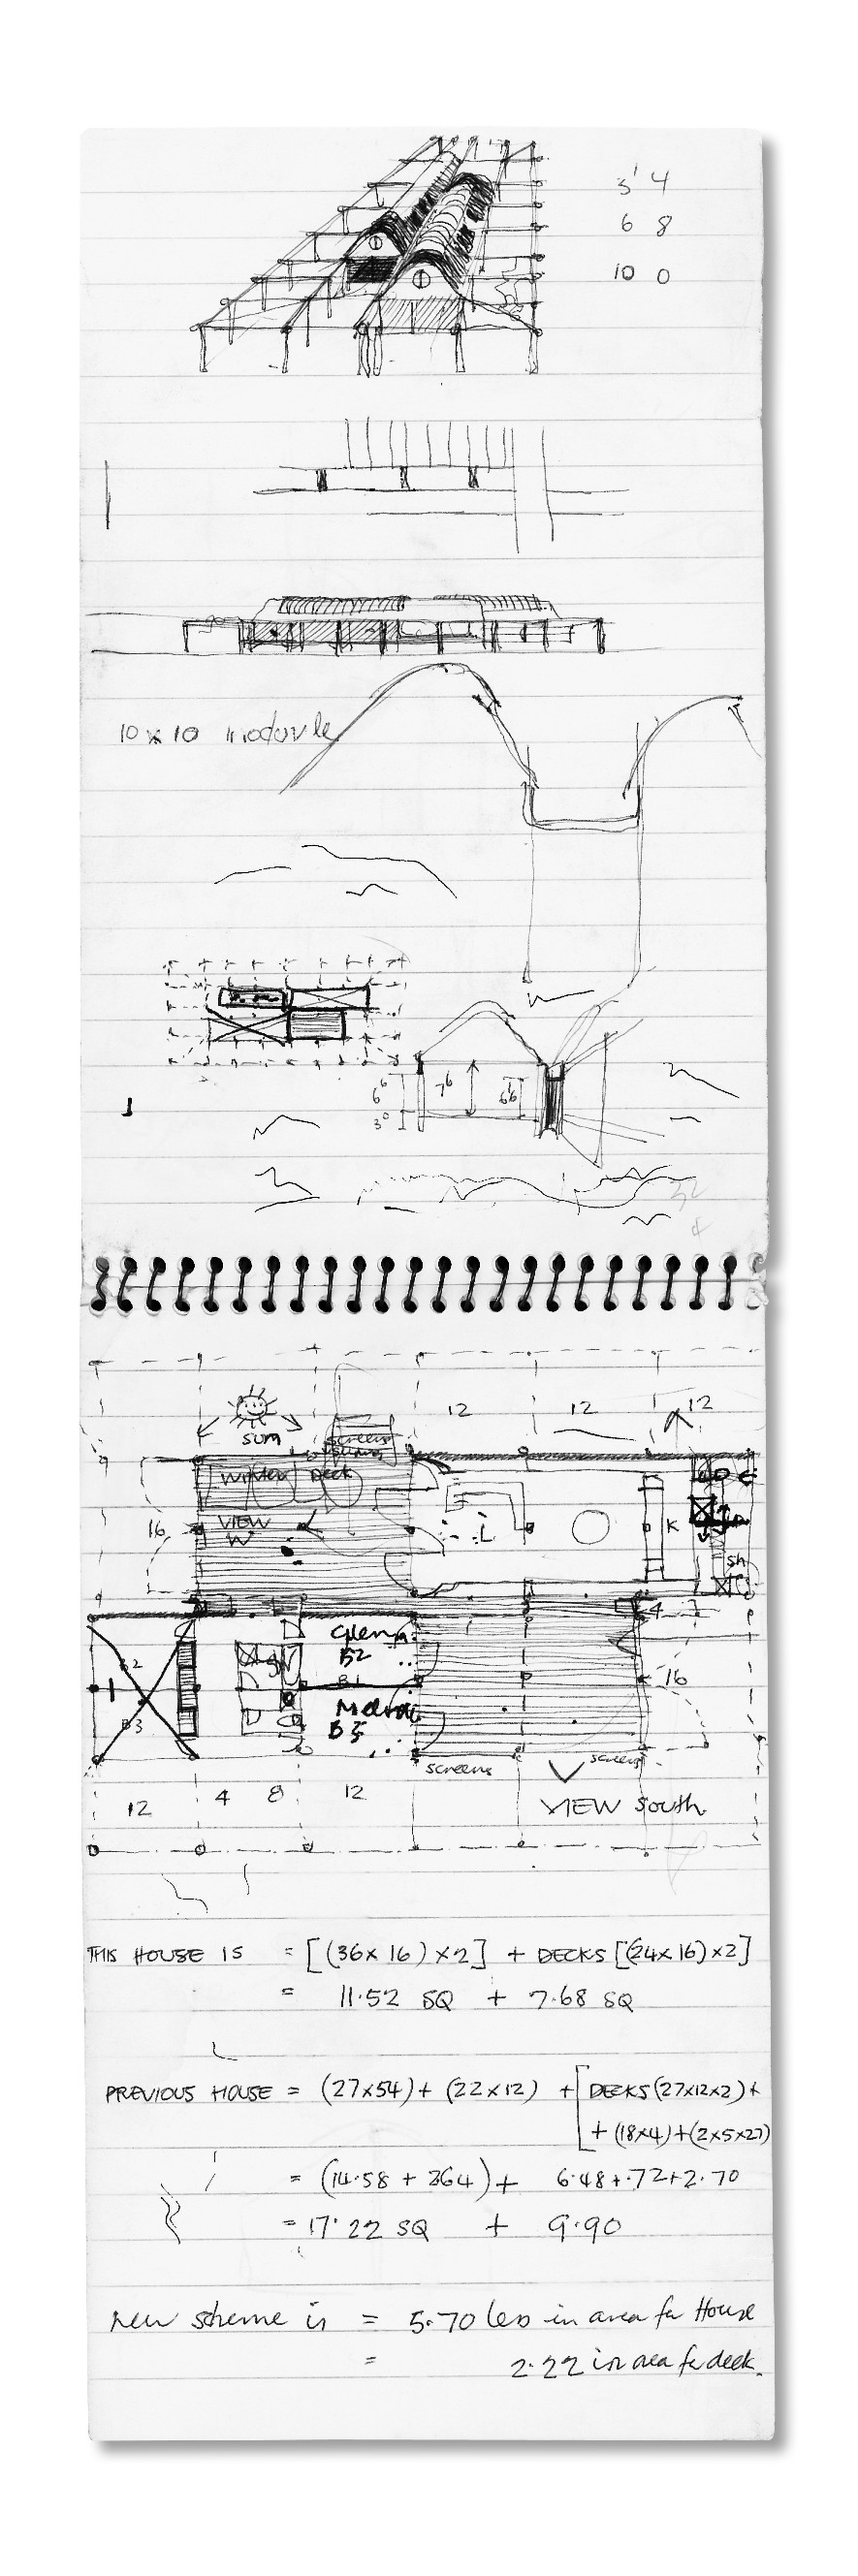 3' 4
6 8
10 0
10 x 10 module
6⁶ 7⁶ 6⁶
3⁰
32
4
12 12 12
sun screens
winter Deck
VIEW
W
16 L K
sh
Glenn 4
B2 B2
B1 16
B3
screens screens
12 4 8 12
VIEW South
THIS HOUSE IS = [(36 x 16) x 2] + DECKS [(24 x 16) x 2]
= 11.52 SQ + 7.68 SQ
PREVIOUS HOUSE = (27x54) + (22 x 12) + [DECKS (27x12x2) +
+ (18x4) + (2x5x27)
= (14.58 + 264) + 6.48 + .72 + 2.70
= 17.22 SQ + 9.90
new scheme is = 5.70 less in area for House
= 2.22 in area for deck.